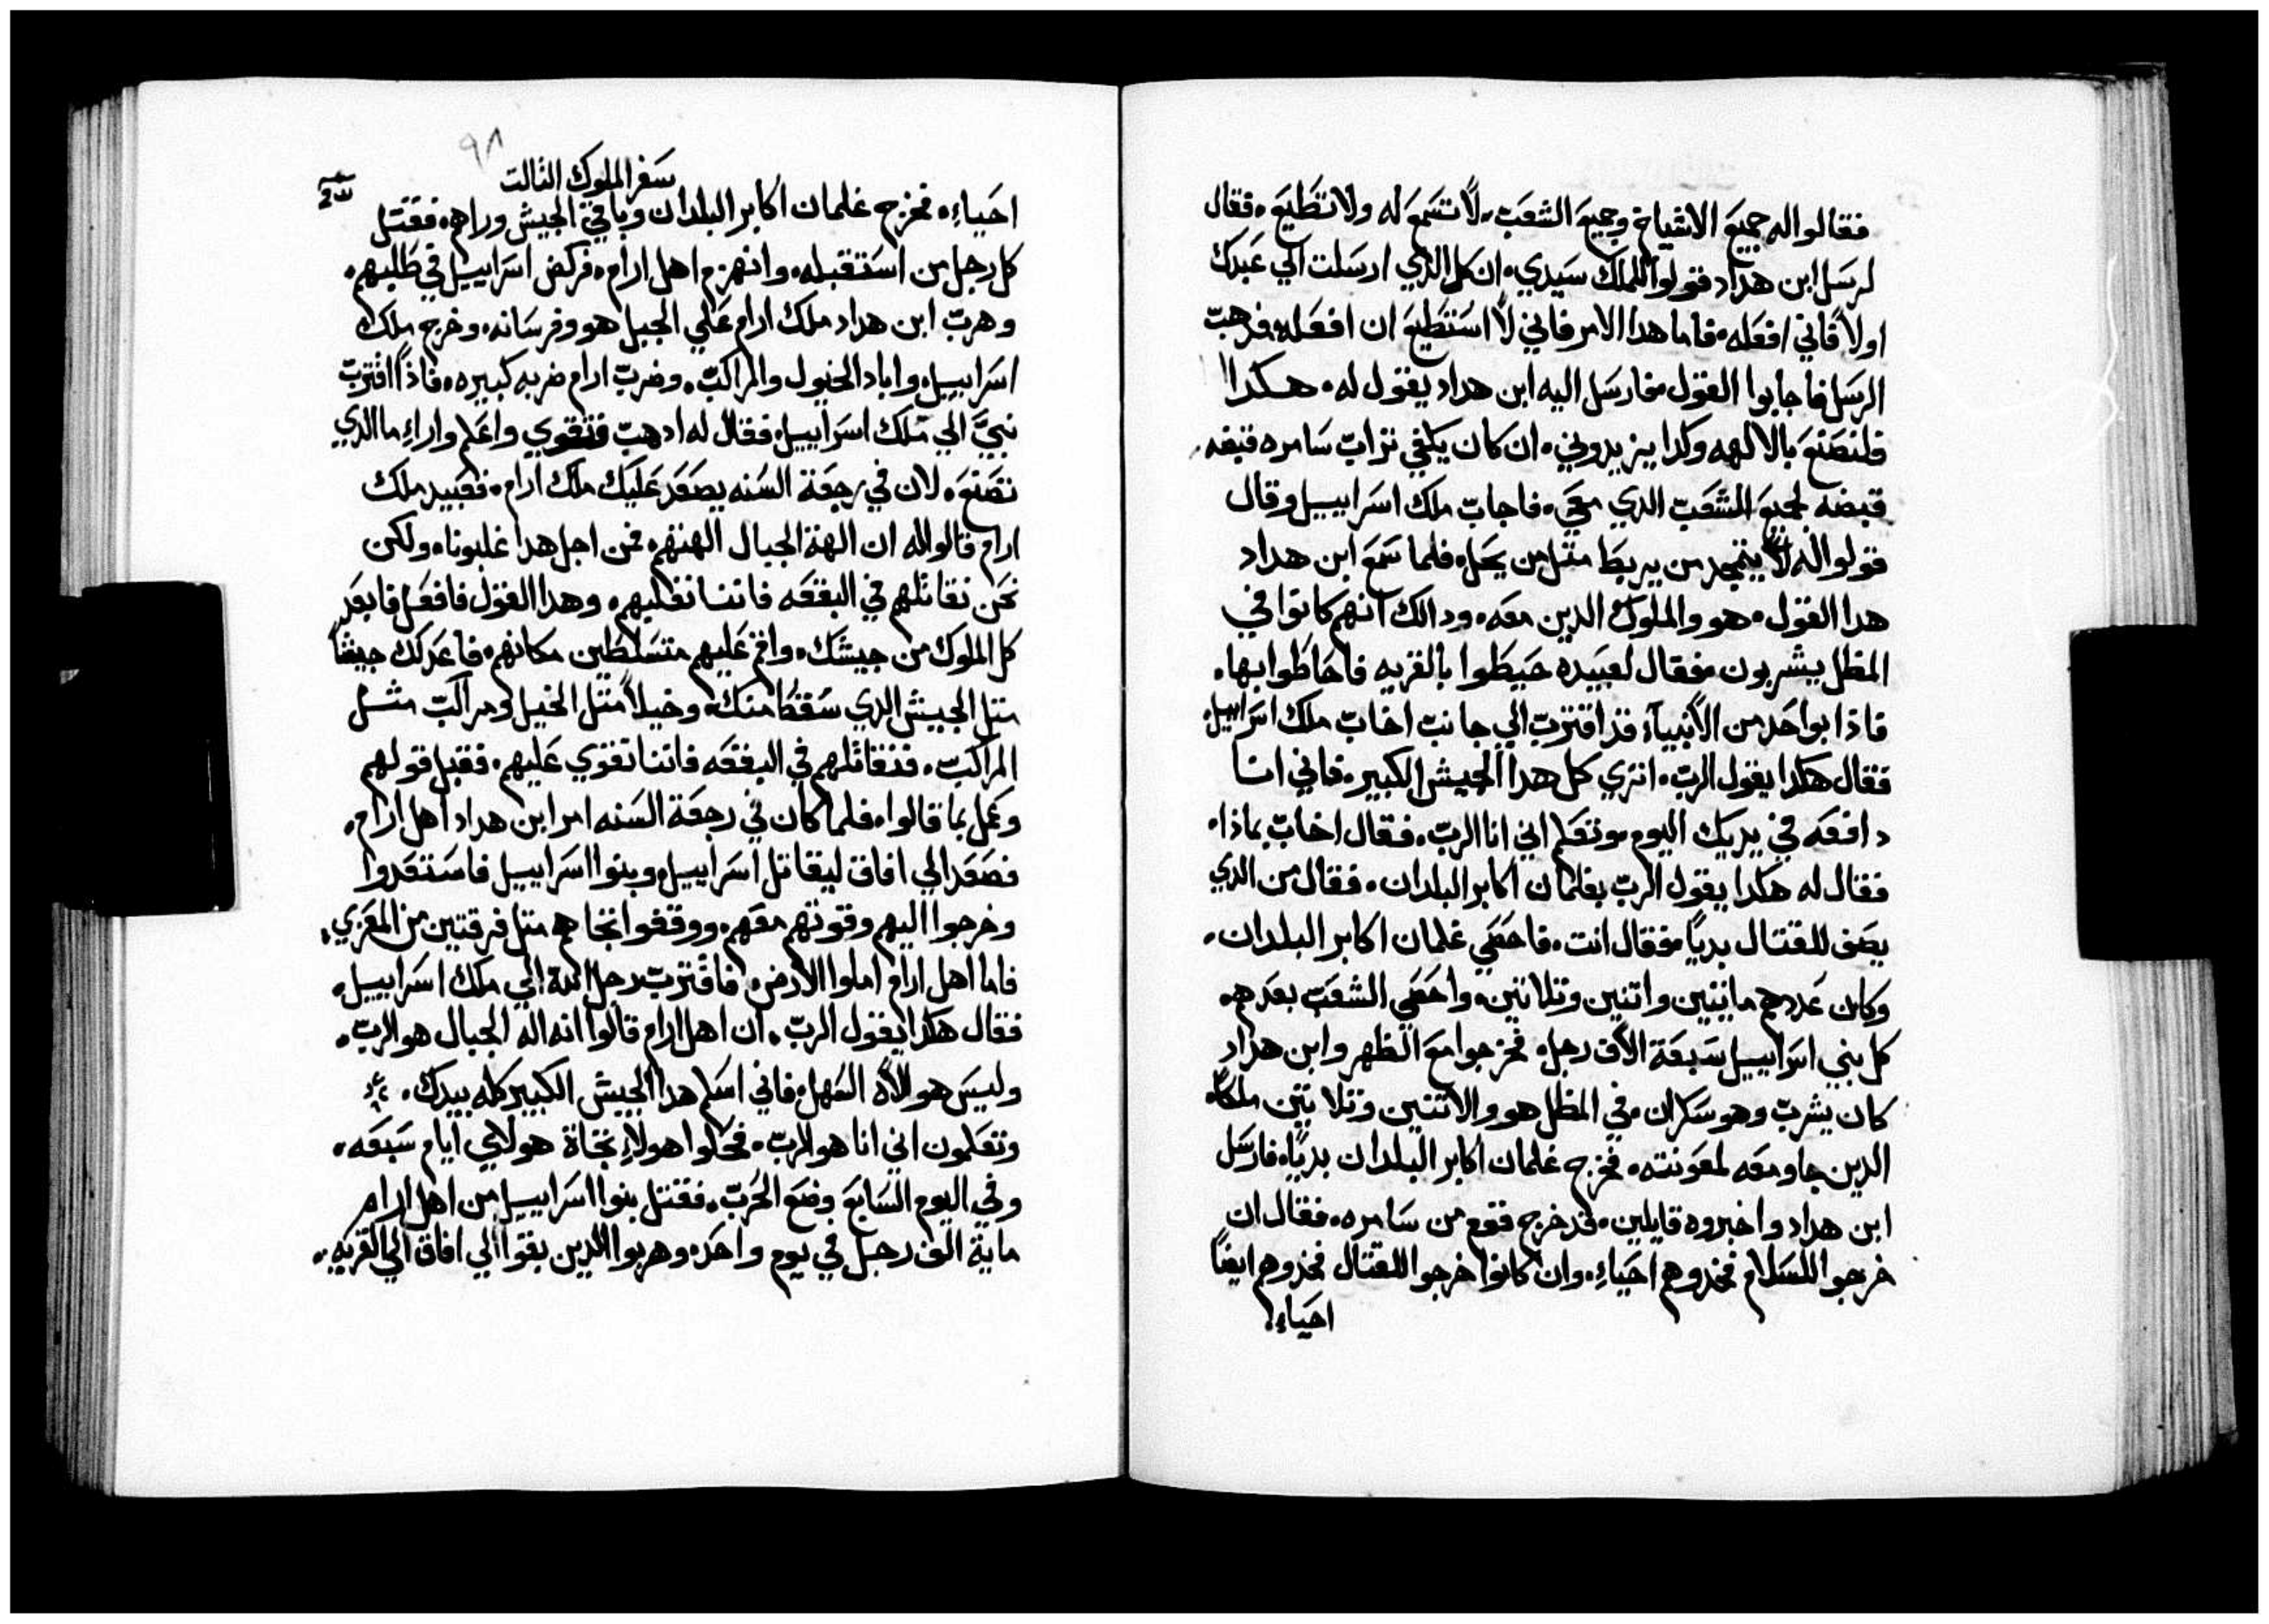 فقالوا له جميع الاشياخ وجميع الشعب. لا تسمع له ولا تطيع. فقال
لرسل ابن هداد قولوا للملك سيدي. ان كل الذي ارسلت الي عبدك
اولاً فاني افعله. فاما هدا الامر فاني لا استطيع ان افعله. فدهب
الرسل فاجابوا القول. فارسل اليه ابن هداد يقول له. هكدا
فلتصنع بي الالهه وكدا يزيدوني. ان كان يكفي تراب سامره قبضه
قبضه لجميع الشعب الدي معي. فاجاب ملك اسراييل وقال
قولوا له لا يتمجد من يربط متل من يحل. فلما سمع ابن هداد
هدا القول. هو والملوك الدين معه. ودالك انهم كانوا في
المظل يشربون. فقال لعبيده حيطوا بالقريه فاحاطوا بها.
فاذا بواحد من الانبياء قد اقترب الي جانب اخاب ملك اسراييل
فقال هكدا يقول الرب. اتري كل هدا الجيش الكبير. فاني انا
دافعه في يديك اليوم. وتعلم اني انا الرب. فقال اخاب بماذا.
فقال له هكدا يقول الرب بغلمان اكابر البلدان. فقال من الدي
يصف للقتال بدياً. فقال انت. فاحصي غلمان اكابر البلدان.
وكان عددهم مايتين واتنين وتلاتين. واحصي الشعب بعدهم.
كل بني اسراييل سبعة الاف رجل. فخرجوا مع الظهر وابن هداد
كان يشرب وهو سكران. في المظل هو والاتنين وتلاتين ملكاً.
الدين جاو معه لمعونته. فخرج غلمان اكابر البلدان بدياً. فارسل
ابن هداد واخبروه قايلين. قد خرج قوم من سامره. فقال ان
خرجوا للسلام فخدوهم احياء. وان كانوا خرجوا للقتال فخدوهم ايضاً
احياء
٩٨
سفر الملوك التالت
احياء. فخرج غلمان اكابر البلدان وباقي الجيش وراهم. فقتل
كل رجل من استقبله. وانهزم اهل ارام. فركض اسراييل في طلبهم.
وهرب ابن هداد ملك ارام علي الجبل هو وفرسانه. وخرج ملك
اسراييل. واباد الخيول والمراكب. وضرب ارام ضربه كبيره. فاذا اقترب
نبيّ الي ملك اسراييل. فقال له ادهب فتقوي واعلم واراء ما الدي
تصنع. لان في رجعة السنه يصعد عليك ملك ارام. فعبيد ملك
ارام قالوا له ان الهة الجبال الهتهم. فمن اجل هدا غلبونا. ولكن
نحن نقاتلهم في البقعه فاننا نغلبهم. وهدا القول فافعل فابعد
كل الملوك من جيشك. واقم عليهم متسلطين مكانهم. فاعد لك جيشاً
متل الجيش الدي سقط منك. وخيلاً متل الخيل ومراكب متل
المراكب. فنقاتلهم في البقعه فاننا نقوي عليهم. فقبل قولهم
وعمل بما قالوا. فلما كان في رجعة السنه امر ابن هداد اهل ارام.
فصعد الي افاق ليقاتل اسراييل. وبنوا اسراييل فاستعدوا
وخرجوا اليهم وقوتهم معهم. ووقفوا تجاهم متل فرقتين من المعزي.
فاما اهل ارام املوا الارض. فاقترب رجل الله الي ملك اسراييل.
فقال هكدا يقول الرب. ان اهل ارام قالوا انه اله الجبال هو الرب.
وليس هو الاه السهل. فاني اسلم هدا الجيش الكبير كله بيدك.
وتعلمون اني انا هو الرب. فحلوا هولاء تجاة هولاي ايام سبعه.
وفي اليوم السابع وضع الحرب. فقتل بنوا اسراييل من اهل ارام
ماية الف رجل في يوم واحد. وهربوا الدين بقوا الي افاق الي القريه.